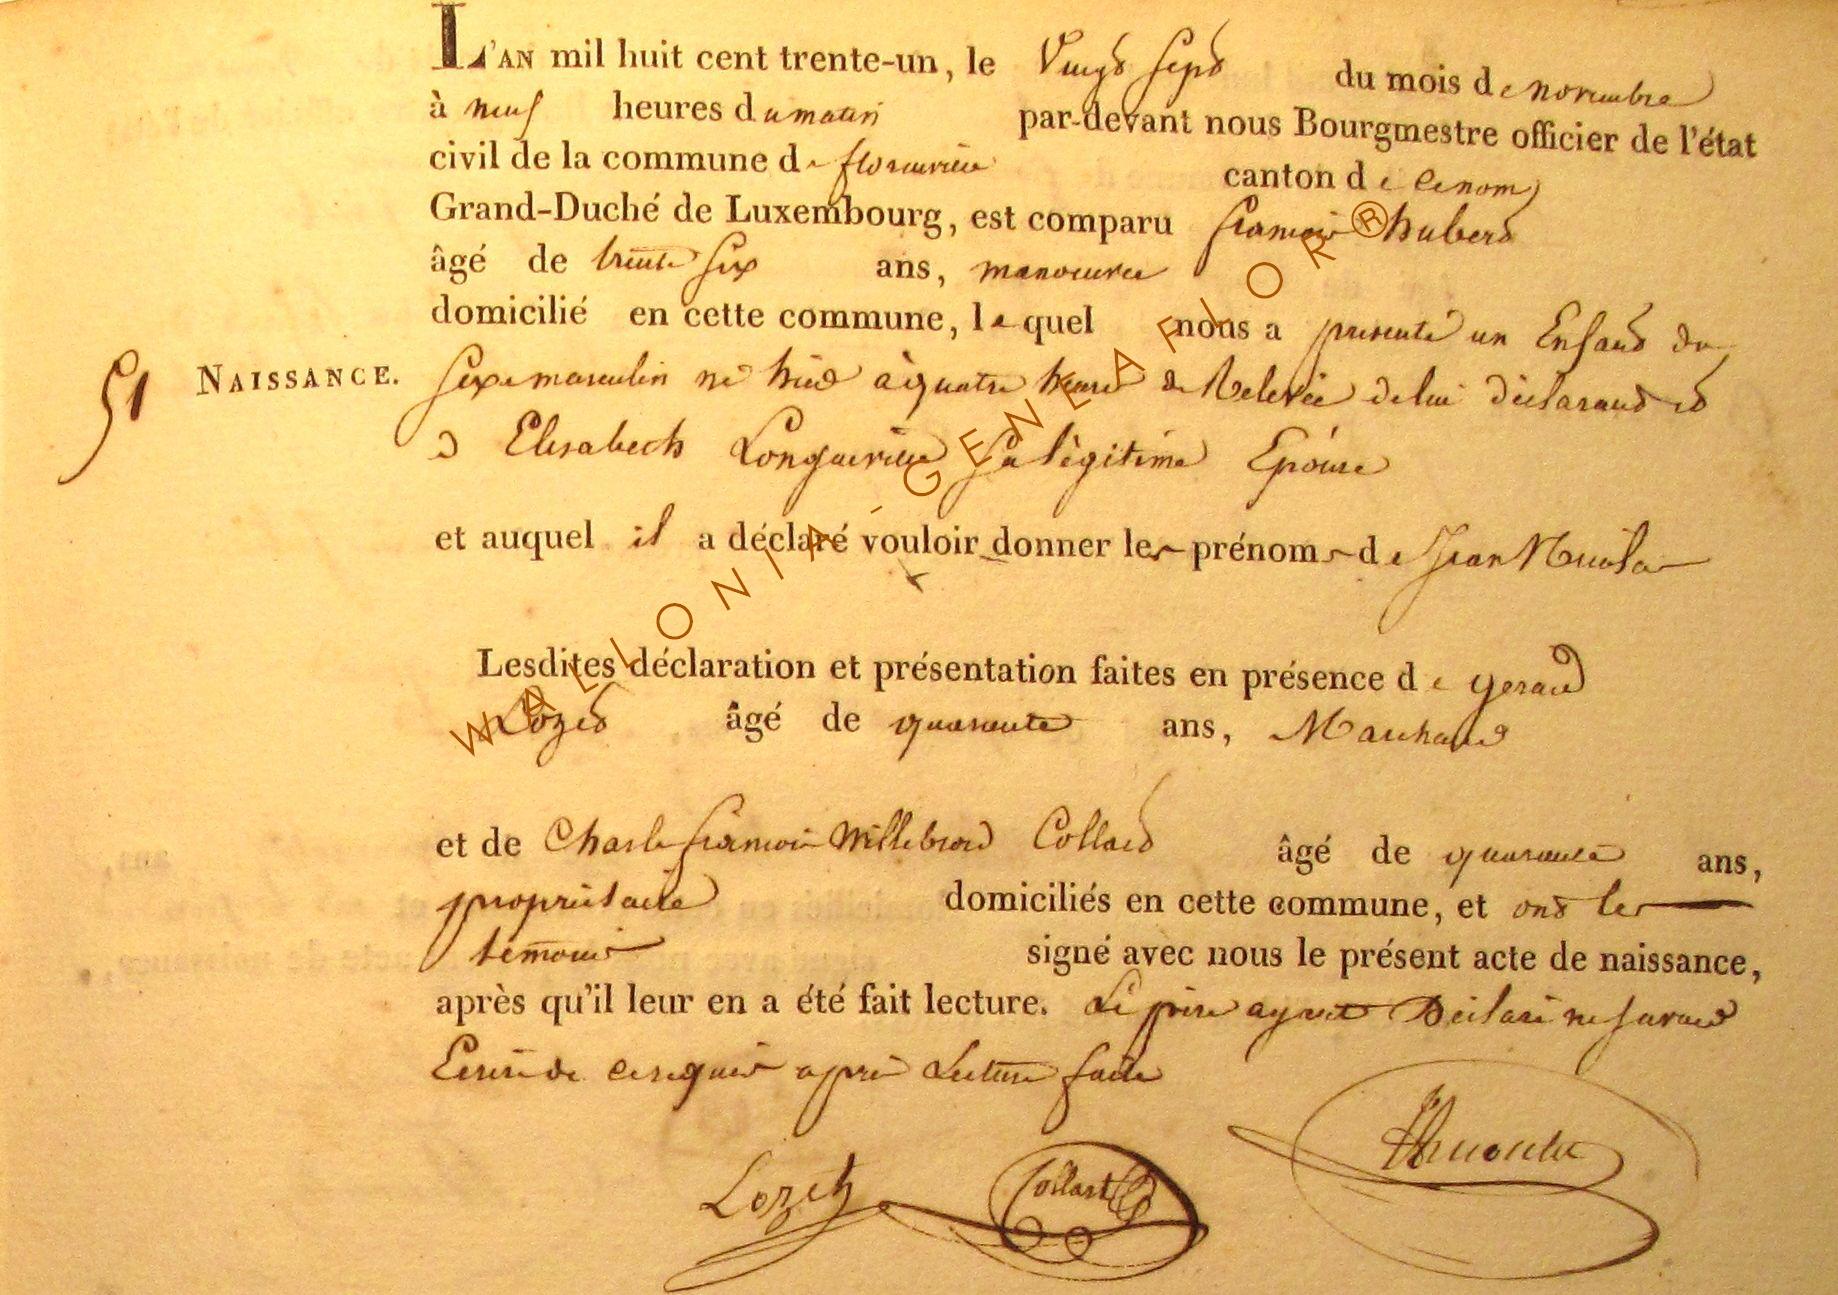 L'AN mil huit cent trente-un, le Vingt Sept du mois de novembre
à neuf heures du matin par-devant nous Bourgmestre officier de l'état
civil de la commune de florenville canton de
Grand-Duché de Luxembourg, est comparu françois hubert
âgé de trente Six ans, manoeuvre
domicilié en cette commune, lequel nous a presenté un Enfant du
51 NAISSANCE. Sexe masculin né hier à quatre heures de Relevée de lui déclarant et
d Elisabeth Longueville Sa légitime Epouse
et auquel il a déclaré vouloir donner les prénoms de Jean Nicolas
Lesdites déclaration et présentation faites en présence de gerard
Lozet âgé de quarante ans, Marchand
et de Charle françois Willebrord Collard âgé de quarante ans,
propriétaire domiciliés en cette commune, et ont les
témoins signé avec nous le présent acte de naissance,
après qu'il leur en a été fait lecture. Le père ayant Déclaré ne Savoir
Ecrire de ce requis après Lecture faite
Lozet Collart
WALLONIA - GENEAFLOR ®